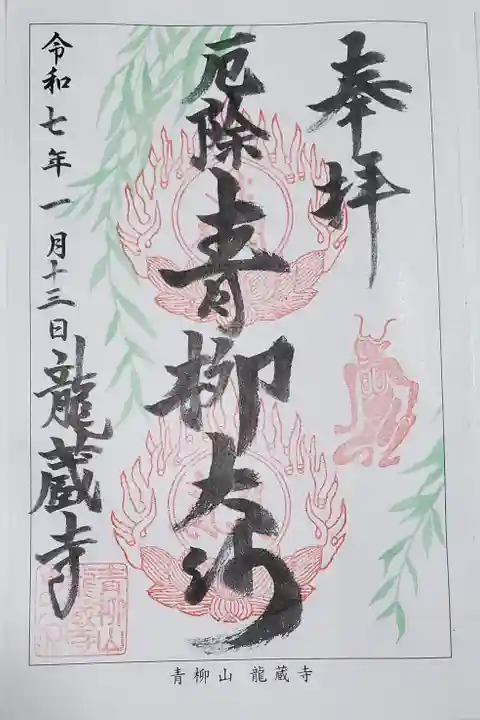 奉拝
厄除
青柳大師
令和七年一月十三日
龍蔵寺
青柳山
龍蔵寺
青柳山 龍蔵寺